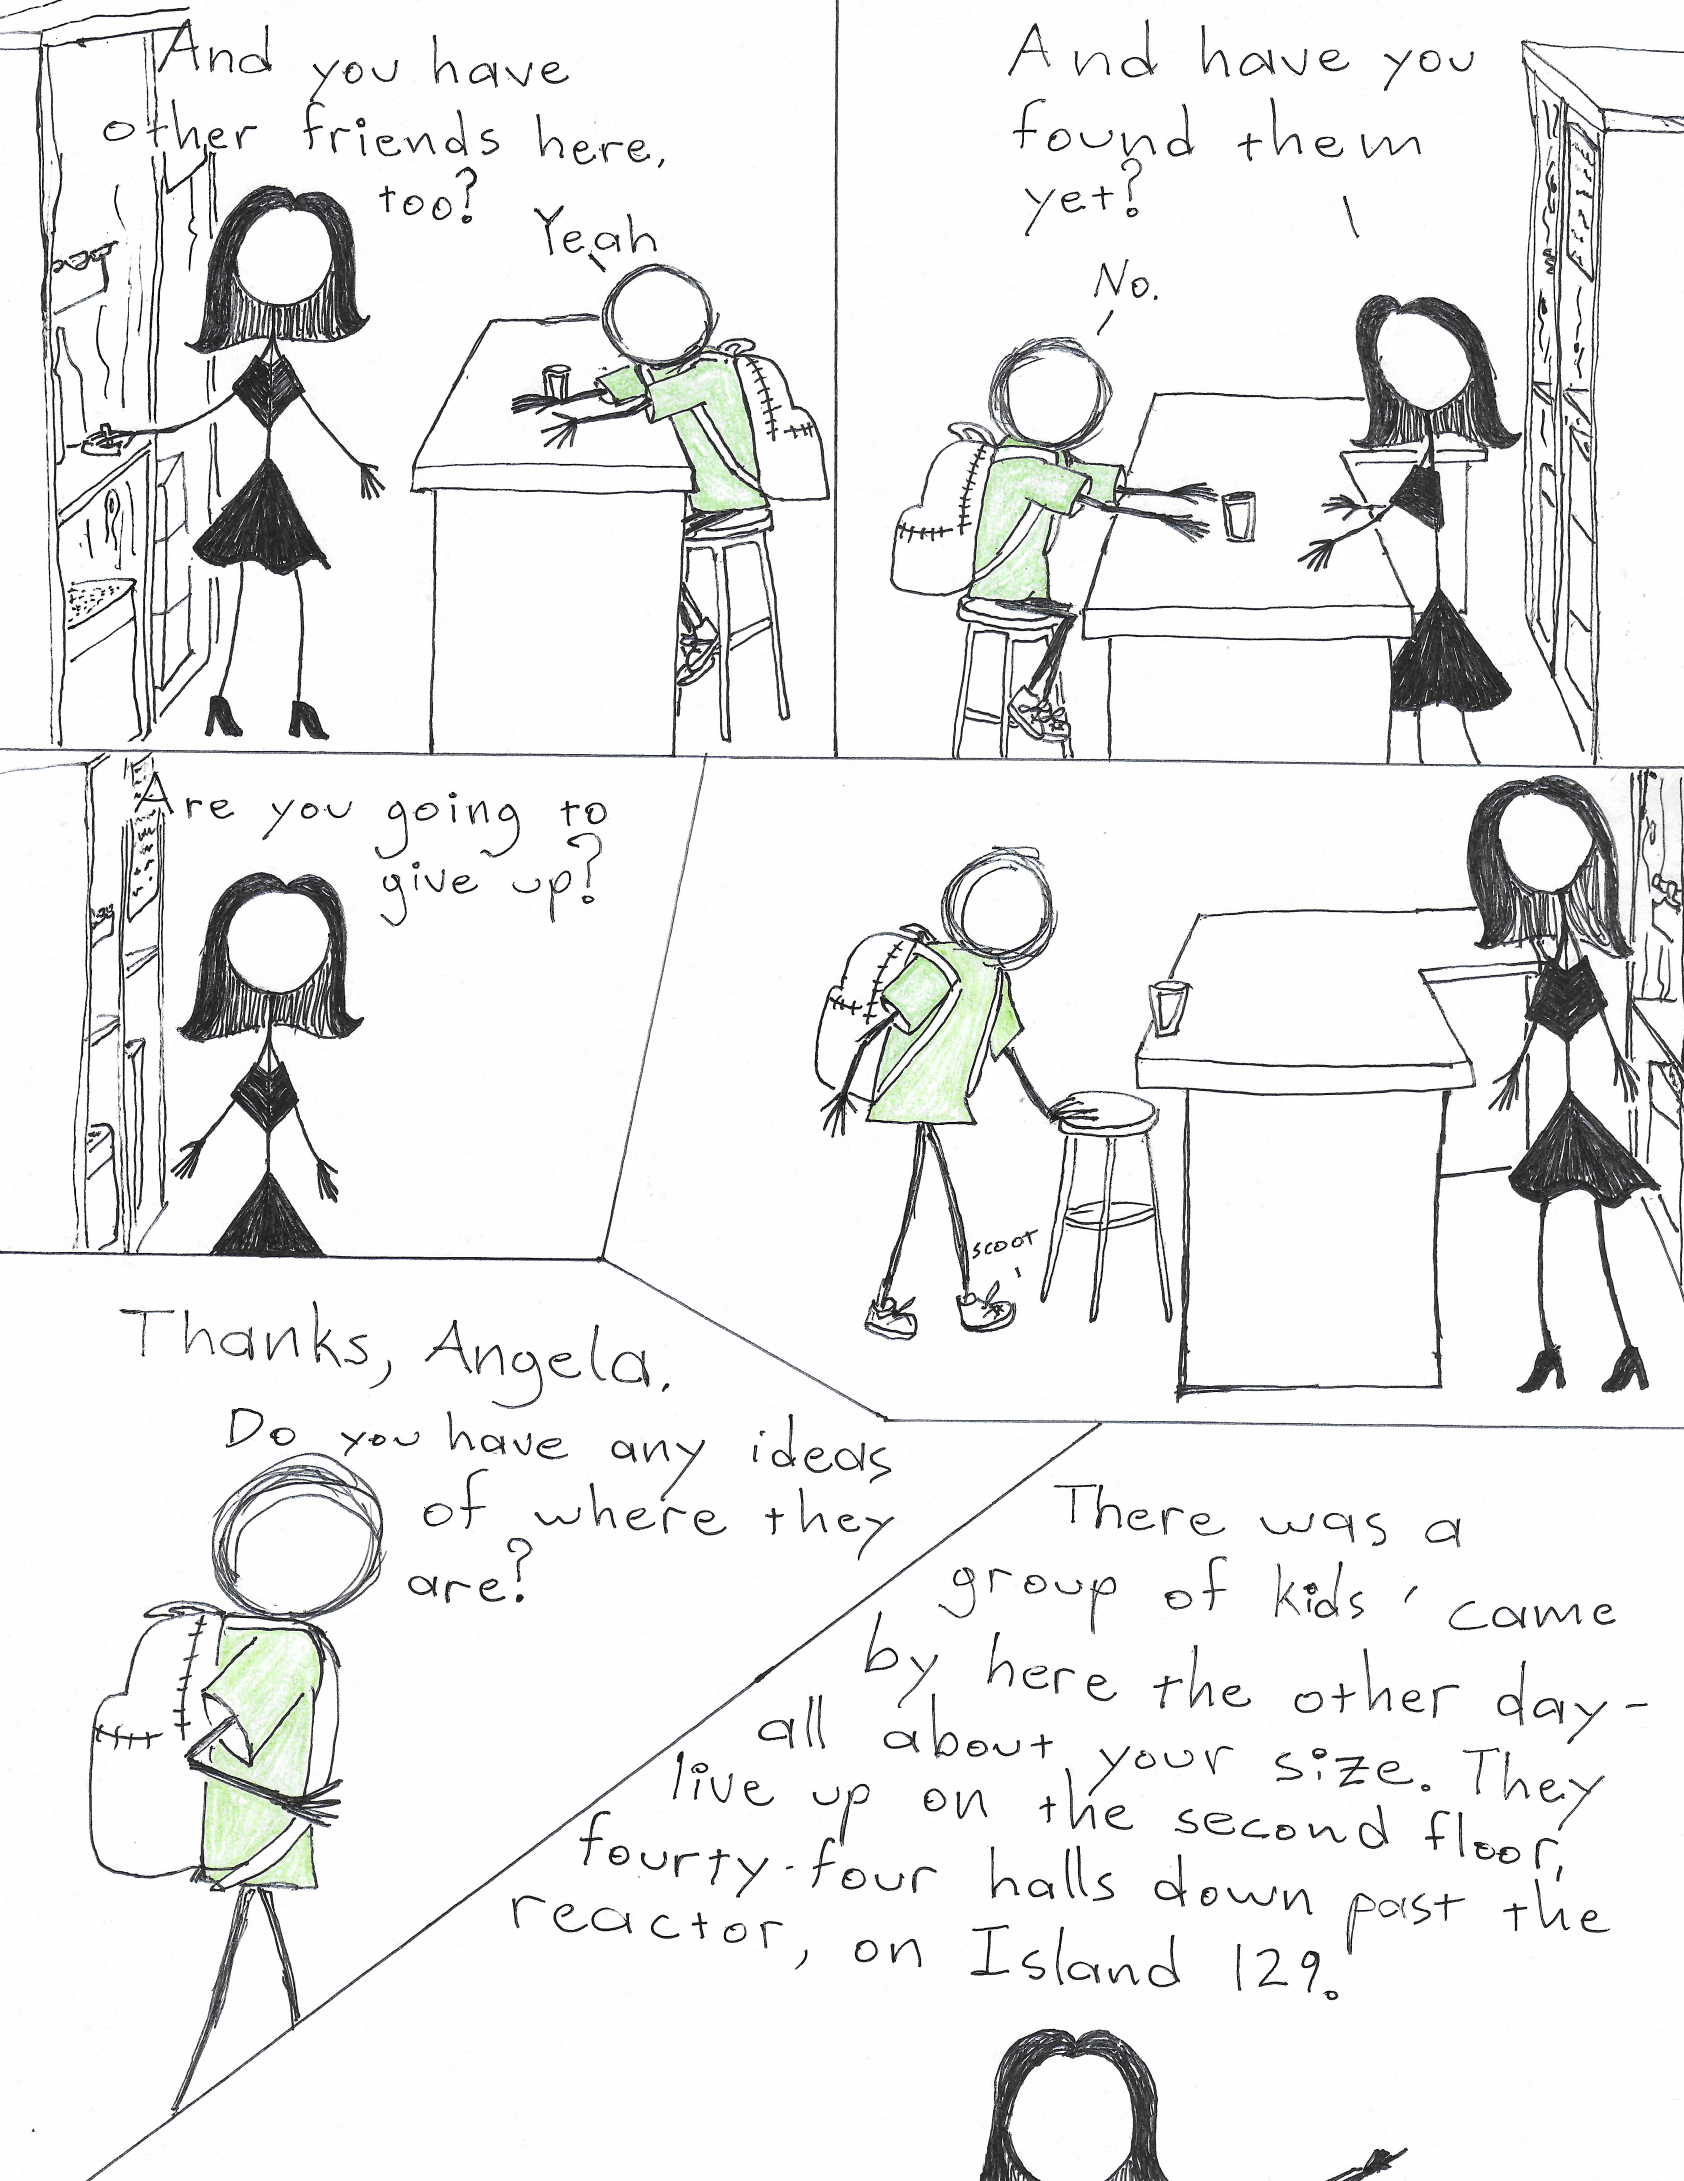 And you have
other friends here,
too?
Yeah
And have you
found them
yet?
No.
Are you going to
give up?
scoot
Thanks, Angela.
Do you have any ideas
of where they
are?
There was a
group of kids ' came
by here the other day-
all about your size. They
live up on the second floor,
fourty-four halls down past the
reactor, on Island 129.